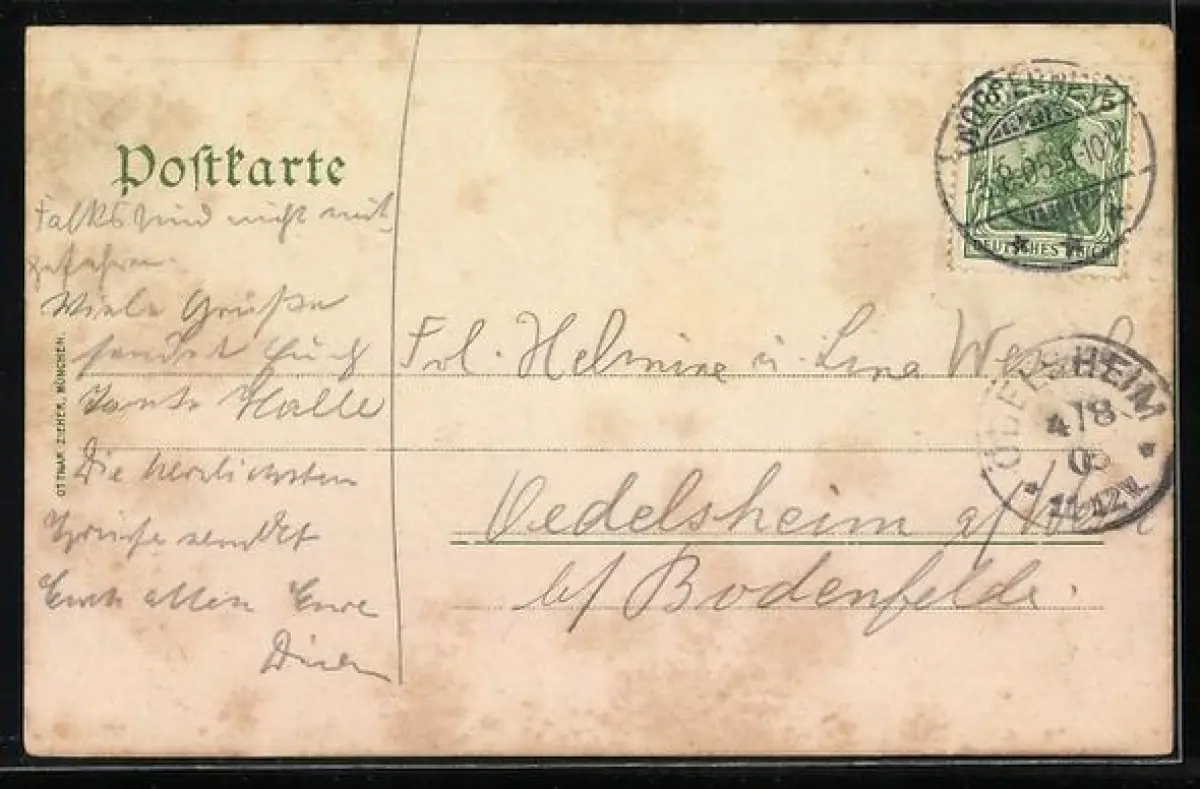 Postkarte
Falks sind nicht mit
gefahren.
Viele Grüße
sendet Euch
Tante Halle
Die herzlichsten
Grüsse sendet
Euch allen Eure
OTTMAR ZIEHER, MÜNCHEN.
NORDERNEY
5
10V
DEUTSCHES REICH
Frl. Helmine u. Lina
Oedelsheim a/Weser
b/ Bodenfelde.
ÖDELSHEIM
4/8
05
11-12V.